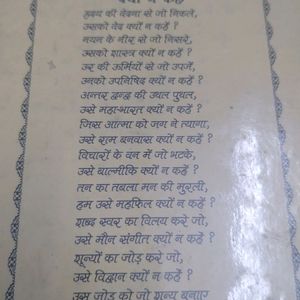 क्यों न कहें
हृदय की वेदना से जो निकले,
उसको वेद क्यों न कहें ?
नयन के नीर से जो निसरे,
उसको शास्त्र क्यों न कहें ?
उर की उर्मियों से जो उपजें,
उनको उपनिषिद क्यों न कहें ?
अन्तर द्वन्द्व की उथल पुथल,
उसे महाभारत क्यों न कहें ?
जिस आत्मा को जग ने त्यागा,
उसे राम बनवास क्यों न कहें ?
विचारों के वन में जो भटके,
उसे बाल्मीकि क्यों न कहें ?
तन का तबला मन की मुरली,
हम उसे महफिल क्यों न कहें ?
शब्द स्वर का विलय करे जो,
उसे मौन संगीत क्यों न कहें ?
शून्यों का जोड़ करे जो,
उसे विद्वान क्यों न कहें ?
उस जोड़ को जो शून्य बनाए